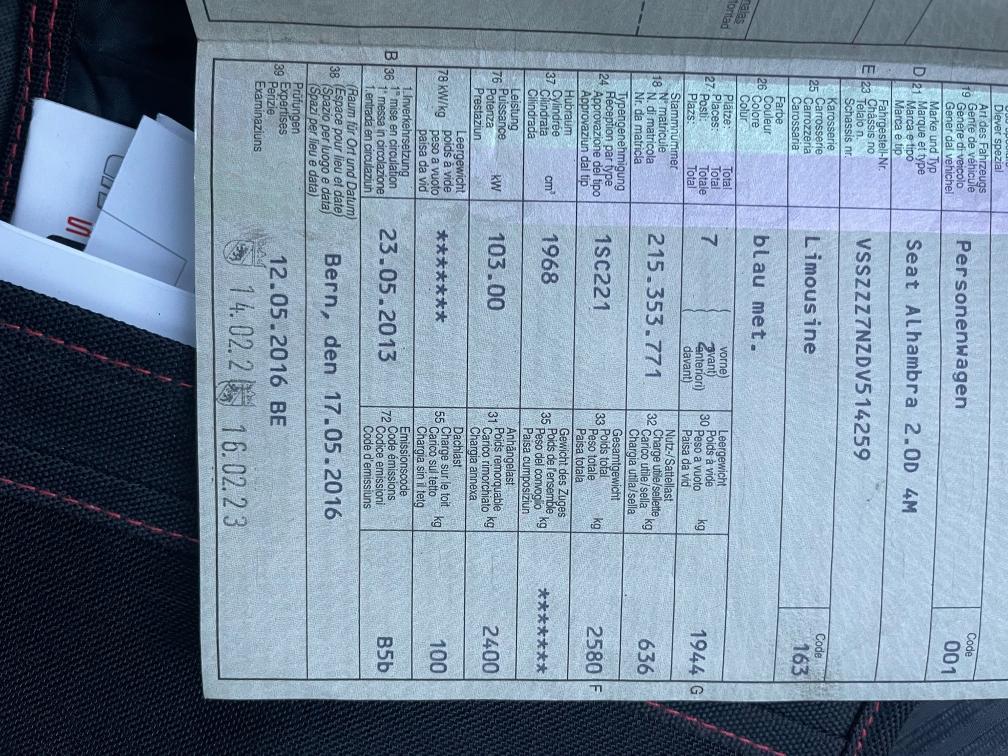 Art des Fahrzeugs
19 Genre de véhicule
Genere di veicolo
Gener dal vehichel
Personenwagen
Code
001
Marke und Typ
D 21 Marque et type
Marca e tipo
Marca e tip
Seat Alhambra 2.0D 4M
Fahrgestell-Nr.
E 23 Châssis no
Telaio n.
Schassis nr.
VSSZZZ7NZDV514259
Karosserie
25 Carrosserie
Carrozzeria
Carrossaria
Limousine
Code
163
Farbe
26 Couleur
Colore
Colur
blau met.
Plätze: Total
27 Places: Total
Posti: Totale
Plazs: Total
7
vorne)
avant)
anteriori)
davant)
Leergewicht
30 Poids à vide
Peso a vuoto
Paisa da vid kg
1944 G
Stammnummer
18 N° matricule
N. di matricola
Nr. da matricla
215.353.771
Nutz-/Sattellast
32 Charge utile/sellette
Carico utile/sella kg
Chargia utila/sella
636
Typengenehmigung
24 Réception par type
Approvazione del tipo
Approvaziun dal tip
1SC221
Gesamtgewicht
33 Poids total
Peso totale
Paisa totala kg
2580 F
Hubraum
37 Cylindrée
Cilindrata cm³
Cilindrada
1968
Gewicht des Zuges
35 Poids de l'ensemble
Peso del convoglio kg
Paisa cumposiziun
*******
Leistung
76 Puissance
Potenza kW
Prestaziun
103.00
Anhängelast
31 Poids remorquable
Carico rimorchiato kg
Chargia annexa
2400
Leergewicht
78 kW/kg poids à vide
peso a vuoto
paisa da vid
*******
Dachlast
55 Charge sur le toit
Carico sul tetto kg
Chargia sin il tetg
100
1. Inverkehrsetzung
B 36 1re mise en circulation
1a messa in circolazione
1. entrada en circulaziun
23.05.2013
Emissionscode
72 Code émissions
Codice emissioni
Code d'emissiuns
B5b
(Raum für Ort und Datum)
38 (Espace pour lieu et date)
(Spazio per luogo e data)
(Spazi per lieu e data)
Bern, den 17.05.2016
Prüfungen
39 Expertises
Perizie
Examinaziuns
12.05.2016 BE
14.02.2
16.02.23